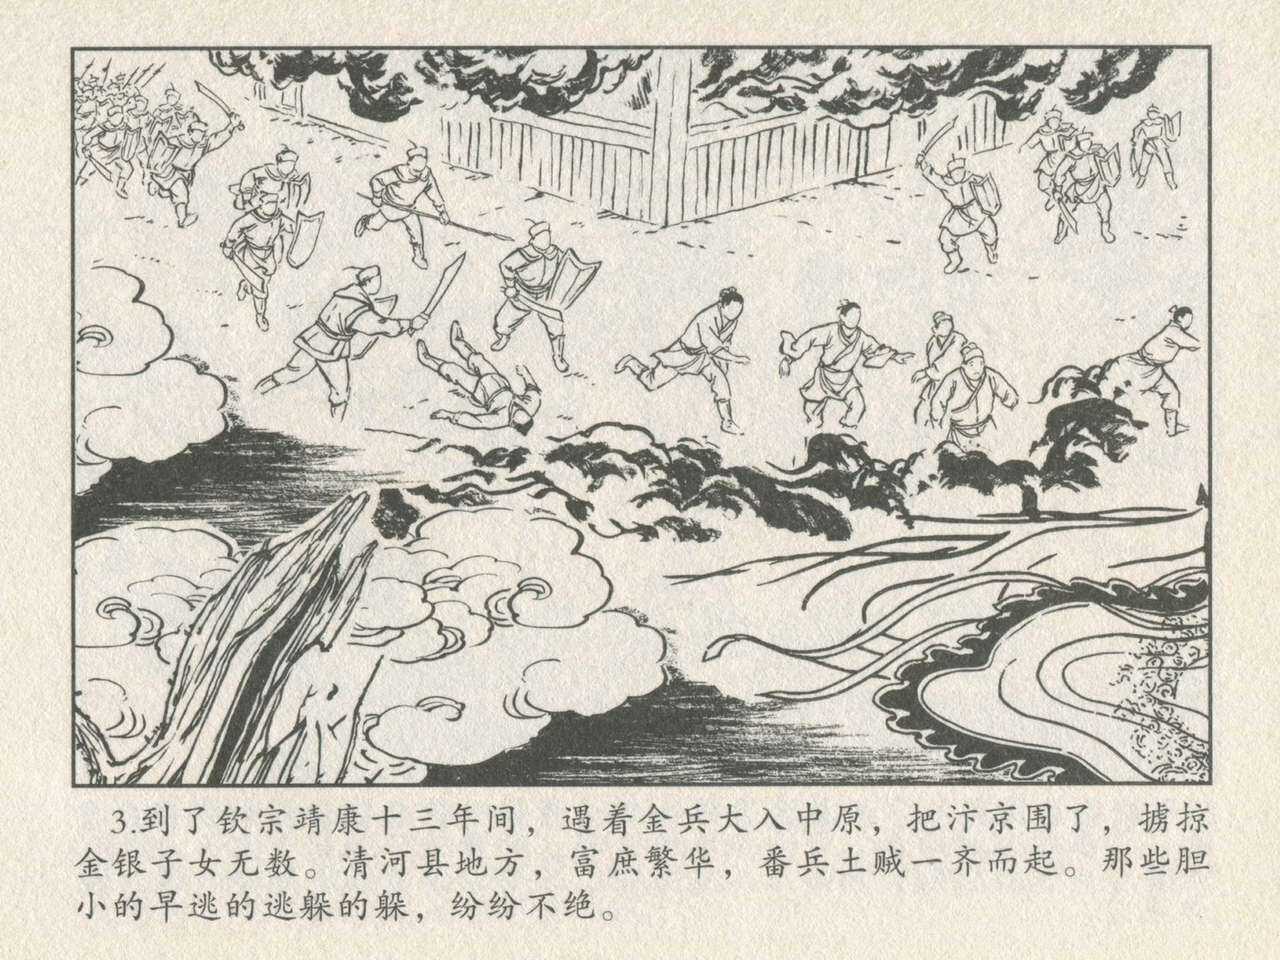 3.到了钦宗靖康十三年间，遇着金兵大入中原，把汴京围了，掳掠
金银子女无数。清河县地方，富庶繁华，番兵土贼一齐而起。那些胆
小的早逃的逃躲的躲，纷纷不绝。